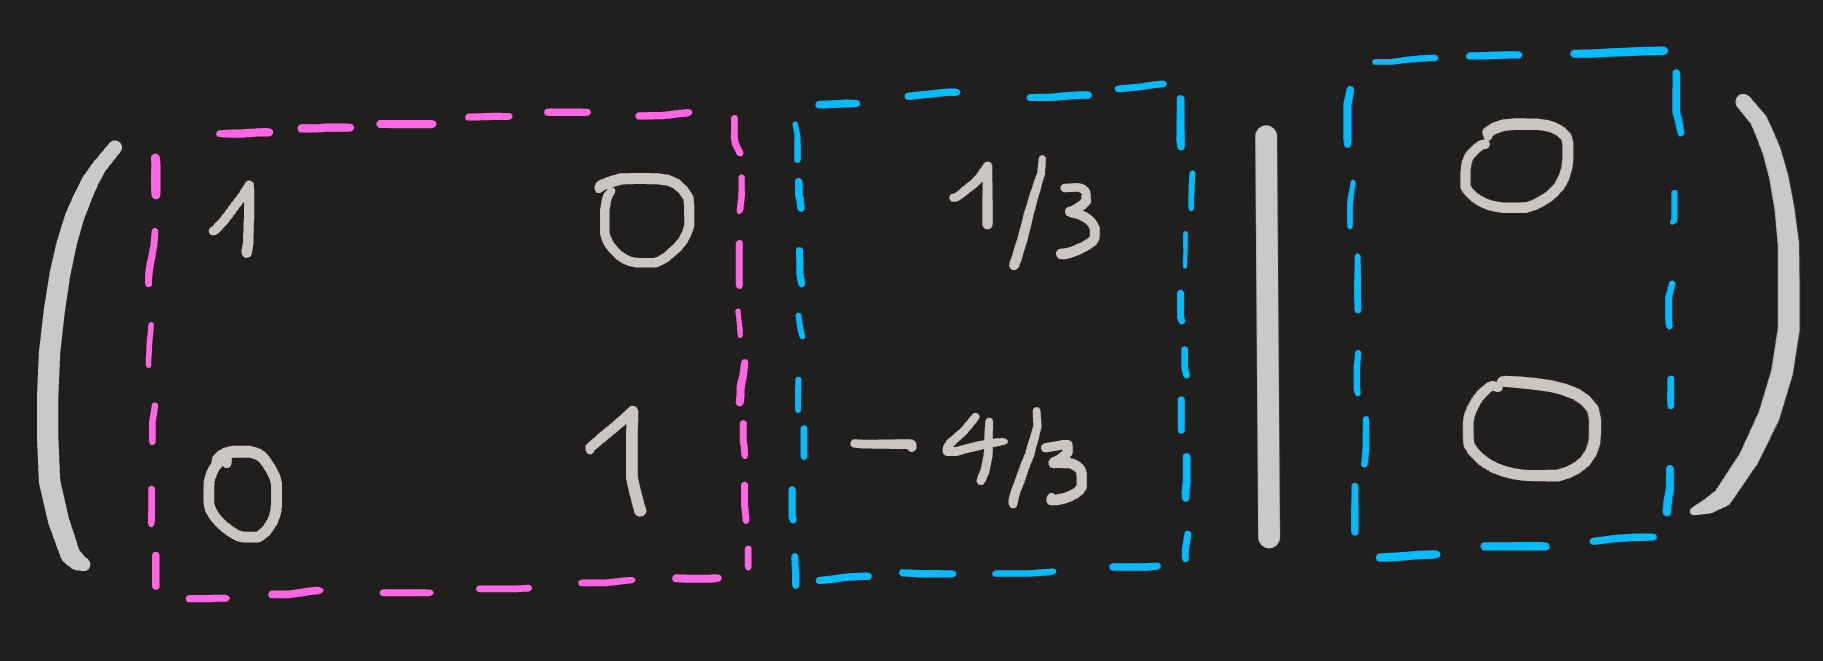 ( 1 0 1/3 | 0 )
0 1 -4/3 0